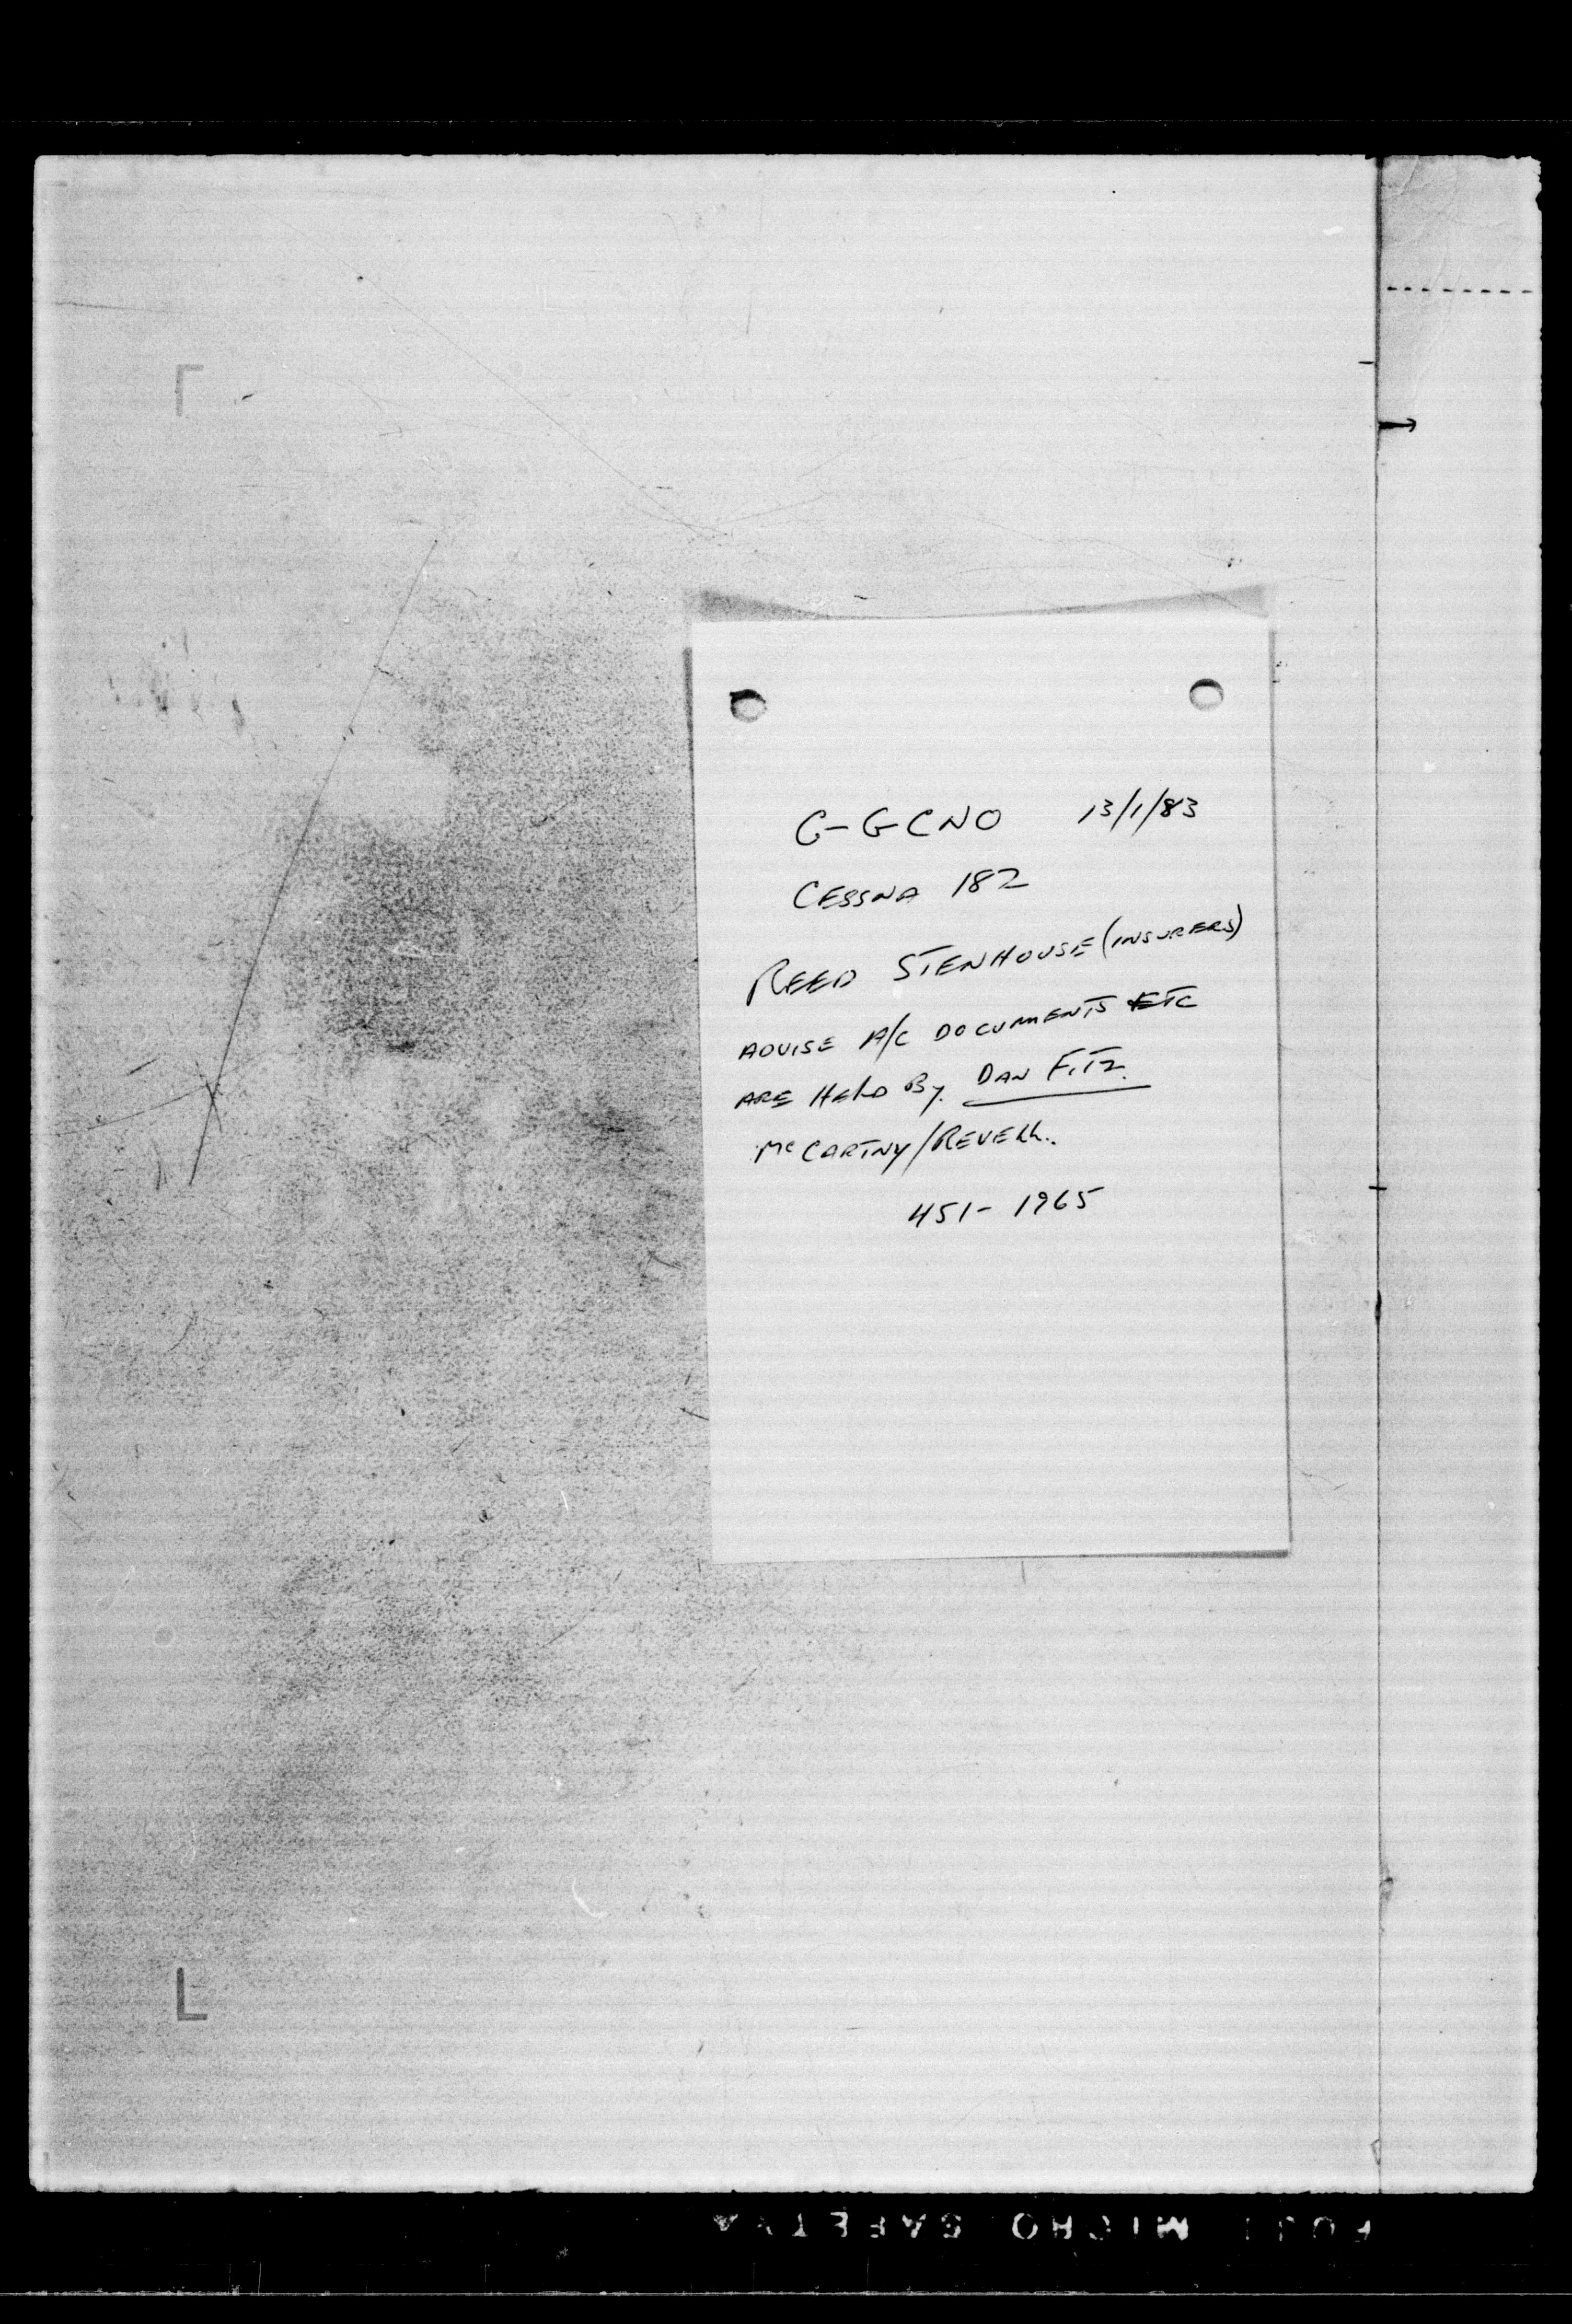 C-GCNO 13/1/83
CESSNA 182
REED STENHOUSE (INSURERS)
ADVISE A/C DOCUMENTS ETC
ARE HELD By. DAN FITZ.
McCARTNY/REVELL.
451-1965
FUJI MICRO SAFETY